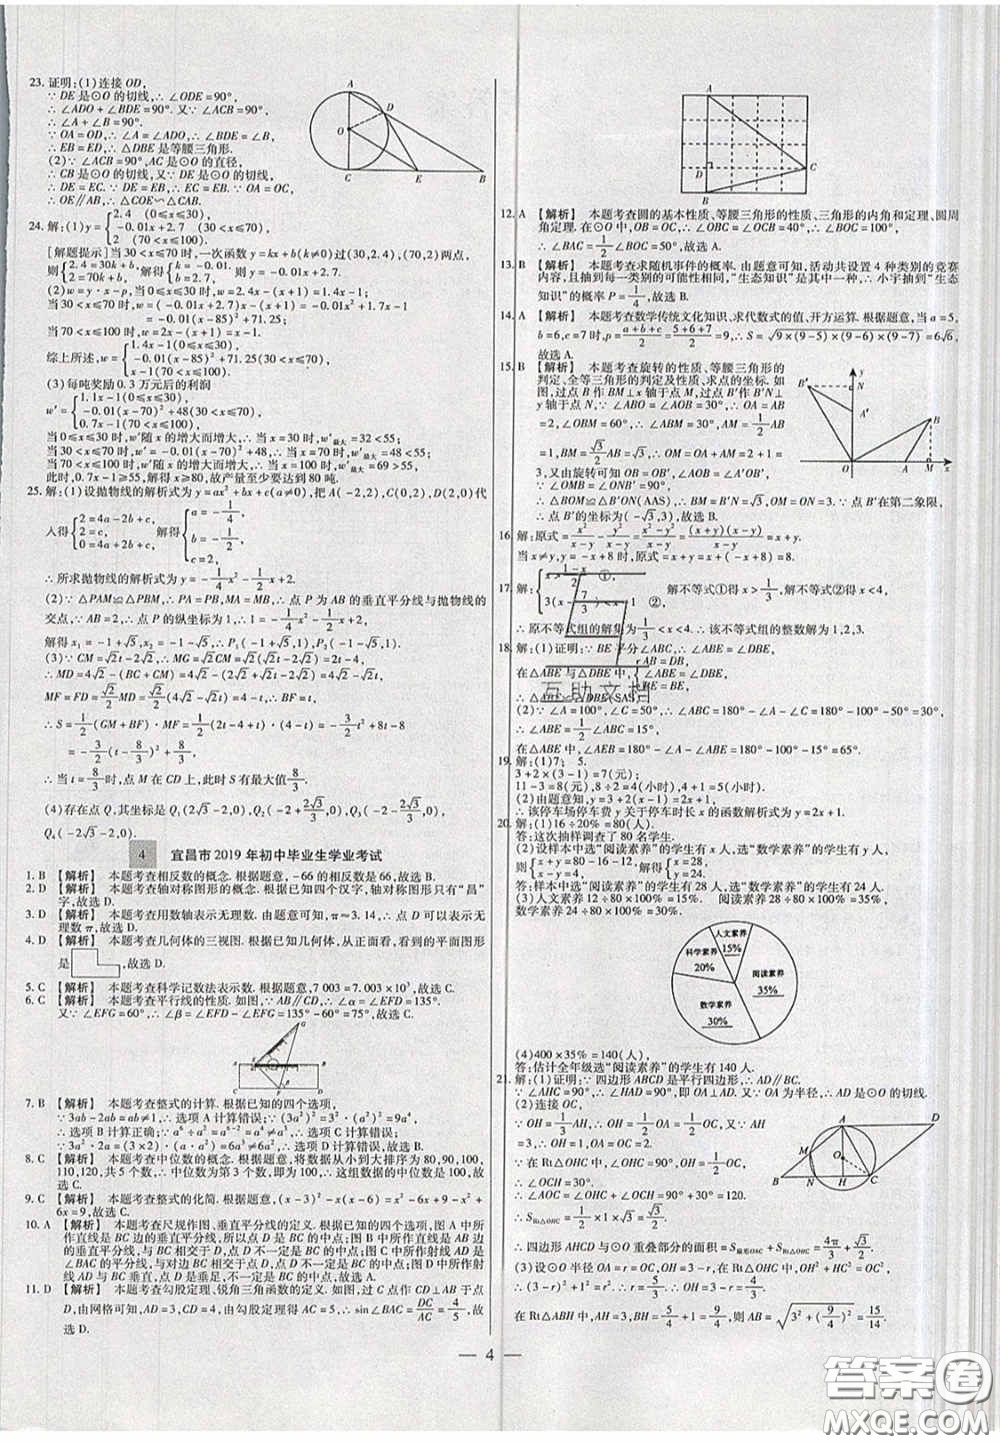 23. 证明:(1)连接 OD,
∵ DE 是⊙O 的切线,∴ ∠ODE=90°,
∴ ∠ADO+∠BDE=90°. 又∵ ∠ACB=90°,
∴ ∠A+∠ABC=90°.
∵ OA=OD,∴ ∠A=∠ADO,∴ ∠BDE=∠ABC,
∴ EB=ED,∴ △DBE 是等腰三角形.
(2)∵ ∠ACB=90°,AC 是⊙O 的直径,
∴ CB 是⊙O 的切线,又∵ DE 是⊙O 的切线,
∴ DE=EC. ∵ DE=EB,∴ EC=EB. ∵ OA=OC,
∴ OE∥AB,∴ △COE∽△CAB.
24. 解:(1)y={2.4 (0≤x≤30),
-0.01x+2.7 (30<x≤70),
2 (70<x≤100).
[解题提示]当 30<x≤70 时,一次函数 y=kx+b(k≠0)过(30,2.4),(70,2)两点,
则{2.4=30k+b, 2=70k+b, 解得{k=-0.01, b=2.7, ∴ y=-0.01x+2.7.
(2)w=y·x-(x+1),当 0≤x≤30 时,w=2.4x-(x+1)=1.4x-1;
当 30<x≤70 时,w=(-0.01x+2.7)x-(x+1)=-0.01x²+1.7x-1
=-0.01(x-85)²+71.25;
当 70<x≤100 时,w=2x-(x+1)=x-1.
综上所述,w={1.4x-1(0≤x≤30),
-0.01(x-85)²+71.25(30<x≤70),
x-1(70<x≤100).
(3)每吨奖励 0.3 万元后的利润
w'={1.1x-1(0≤x≤30),
-0.01(x-70)²+48(30<x≤70),
0.7x-1(70<x≤100).
当 0≤x≤30 时,w'随 x 的增大而增大,∴ 当 x=30 时,w'最大=32<55;
当 30<x≤70 时,w'随 x 的增大而增大,∴ 当 x=70 时,w'最大=48<55;
当 70<x≤100 时,w'随 x 的增大而增大,∴ 当 x=100 时,w'最大=69>55,
此时,0.7x-1≥55,解得 x≥80,故产量至少要达到 80 吨.
25. 解:(1)设抛物线的解析式为 y=ax²+bx+c(a≠0),把 A(-2,2),C(0,2),D(2,0)代
入得{2=4a-2b+c, 2=c, 0=4a+2b+c, 解得{a=-1/4, b=-1/2, c=2,
∴ 所求抛物线的解析式为 y=-1/4x²-1/2x+2.
(2)∵ △PAM≌△PBM,∴ 点 P 为 AB 的垂直平分线与抛物线的
交点,∵ AB=2,∴ 点 P 的纵坐标是 1,∴ 1=-1/4x²-1/2x+2,
解得 x₁=-1+√5,x₂=-1-√5,∴ P₁(-1-√5,1),P₂(-1+√5,1)
(3)∵ CM=√2t-2√2,∴ MG=√2CM=2t-4,
∴ MD=4√2-(BC+CM)=4√2-(2√2+√2t-2√2)=4√2-√2t,
MF=FD=√2/2MD=√2/2(4√2-√2t)=4-t,BF=4-4+t=t,
∴ S=1/2(GM+BF)·MF=1/2(2t-4+t)·(4-t)=-3/2t²+8t-8
=-3/2(t-8/3)²+8/3,
∴ 当 t=8/3时,点 M 在 CD 上,此时 S 有最大值8/3.
(4)存在点 Q,其坐标是 Q₁(2√3-2,0),Q₂(-2+2√3/3,0),Q₃(-2-2√3/3,0),
Q₄(-2√3-2,0).
4 宜昌市 2019 年初中毕业生学业考试
1. B 【解析】 本题考查相反数的概念. 根据题意,-66 的相反数是 66,故选 B.
2. D 【解析】 本题考查轴对称图形的概念. 根据已知的四个汉字,轴对称图形只有“昌”
字,故选 D.
3. D 【解析】 本题考查用数轴表示无理数. 由题意可知,π≈3.14,∴ 点 D 可以表示无
理数 π,故选 D.
4. D 【解析】 本题考查几何体的三视图. 根据已知几何体,从正面看,看到的平面图形
是 ,故选 D.
5. C 【解析】 本题考查科学记数法表示数. 根据题意,7 003=7.003×10³,故选 C.
6. C 【解析】 本题考查平行线的性质. 如图,∵ AB∥CD,∴ ∠α=∠EFD=135°.
又∵ ∠EFG=60°,∴ ∠β=∠EFD-∠EFG=135°-60°=75°,故选 C.
7. B 【解析】 本题考查整式的计算. 根据已知的四个选项,
∵ 3ab-2ab=ab≠1,∴ 选项 A 计算错误;∵ (3a²)²=3²(a²)²=9a⁴,
∴ 选项 B 计算正确;∵ a⁶÷a²=a⁶⁻²=a⁴≠a³,∴ 选项 C 计算错误;
∵ 3a²·2a=(3×2)·(a²·a)=6a³≠6a²,∴ 选项 D 计算错误,故选 B.
8. C 【解析】 本题考查中位数的概念. 根据题意,将数据从小到大排序为 80,90,100,
110,120,共 5 个数,∴ 中位数为第 3 个数,即 100,∴ 这组数据的中位数是 100,故
选 C.
9. C 【解析】 本题考查整式的化简. 根据题意,(x-3)²-x(x-6)=x²-6x+9-x²+
6x=9,故选 C.
10. A 【解析】 本题考查尺规作图、垂直平分线的定义. 根据已知的四个选项,图 A 中所
作直线是 BC 的垂直平分线,与 BC 的交点 D 是 BC 的中点;图 B 中所作直线是 AB 边
的垂直平分线,与 BC 相交,点 D 不一定是 BC 的中点;图 C 中所作射线 AD 是
∠BAC 的平分线,与 BC 的交点 D 不一定是 BC 的中点;图 D 中所作射线 AD 与
BC 垂直,点 D 是垂足,不一定是 BC 的中点,故选 A.
11. D 【解析】 本题考查勾股定理、锐角三角函数的定义. 如图,过点 C 作 CD⊥AB 于点
D,由网格可知,AD=3,CD=4,由勾股定理得 AC=5,∴ sin∠BAC=DC/AC=4/5,故
选 D.
12. A 【解析】 本题考查圆的基本性质、等腰三角形的性质、三角形的内角和定理、圆周
角定理. 在⊙O 中,OB=OC,∴ ∠OBC=∠OCB=40°,∴ ∠BOC=100°,
∴ ∠BAC=1/2∠BOC=50°,故选 A.
13. B 【解析】 本题考查求随机事件的概率. 由题意可知,活动共设置 4 种类别的竞赛
内容,且抽到每一类别的可能性相同,“生态知识”是其中一种,∴ 小宇抽到“生态
知识”的概率 P=1/4,故选 B.
14. A 【解析】 本题考查数学传统文化知识、求代数式的值、开方运算. 根据题意,当 a=5,
b=6,c=7 时,p=(a+b+c)/2=(5+6+7)/2=9,∴ S=√9×(9-5)×(9-6)×(9-7)=6√6,
故选 A.
15. B 【解析】 本题考查旋转的性质、等腰三角形的
判定、全等三角形的判定及性质、求点的坐标. 如
图,过点 B 作 BM⊥x 轴于点 M,过点 B'作 B'N⊥
y 轴于点 N,∵ ∠ABO=∠AOB=30°,∴ OA=AB=
2,∠OBM=60°,∴ ∠ABM=30°,∴ AM=1/2AB=
1,∴ BM=√3/2AB=√3/2×2=√3,∴ OM=OA+AM=2+1=
3,又由旋转可知 OB=OB',∠AOB=∠A'OB'=30°,
∵ ∠OMB=∠ONB'=90°,
∴ △BOM≌△B'ON(AAS),∴ BM=B'N=√3,OM=ON=3. ∵ 点 B'在第二象限,
∴ 点 B'的坐标为(-√3,3),故选 B.
16. 解:原式=x²/(x-y)-y²/(x-y)=(x²-y²)/(x-y)=(x+y)(x-y)/(x-y)=x+y.
当 x≠y,y=-x+8时,原式=x+(-x+8)=8.
17. 解: ①, 3(x-7/3)<x+1 ②, 解不等式①得 x>1/3,解不等式②得 x<4,
∴ 原不等式组的解集为1/3<x<4. ∴ 该不等式组的整数解为 1,2,3.
18. 解:(1)证明:∵ BE 平分∠ABC,∴ ∠ABE=∠DBE,
在△ABE 与△DBE 中,{AB=DB, ∠ABE=∠DBE, BE=BE,
∴ △ABE≌△DBE(SAS).
(2)∵ ∠A=100°,∠C=50°,∴ ∠ABC=180°-∠A-∠C=30°,
∴ ∠ABE=1/2∠ABC=15°,
在△ABE 中,∠AEB=180°-∠A-∠ABE=180°-100°-15°=65°.
19. 解:(1)7; 5.
3+2×(3-1)=7(元);
11-3=8(元),8÷2=4(小时),4+1=5(小时)
(2)由题意知,y=3+2(x-1)=2x+1,
∴ 该停车场停车费 y 关于停车时长 x 的函数解析式为 y=2x+1.
20. 解:(1)16÷20%=80(人),
答:这次抽样调查了 80 名学生.
(2)设样本中选“阅读素养”的学生有 x 人,选“数学素养”的学生有 y 人,
{x+y=80-16-12, x-y=4, 解得{x=28, y=24.
答:样本中选“阅读素养”的学生有 28 人,选“数学素养”的学生有 24 人.
(3)人文素养 12÷80×100%=15%, 阅读素养 28÷80×100%=35%,
数学素养 24÷80×100%=30%.
人文素养 15%
科学素养 20%
阅读素养 35%
数学素养 30%
(4)400×35%=140(人),
答:估计全年级选“阅读素养”的学生有 140 人.
21. 解:(1)证明:∵ 四边形 ABCD 是平行四边形,∴ AD∥BC.
∵ ∠AHC=90°,∴ ∠HAD=90°,即 OA⊥AD. 又∵ OA 为半径,∴ AD 是⊙O 的切线.
(2)连接 OC,
∵ OH=1/2OA,AH=3,∴ OH=1,OA=2,
∵ 在 Rt△OHC 中,∠OHC=90°,OH=1/2OC,
∴ ∠OCH=30°,
∴ ∠AOC=∠OHC+∠OCH=120°,
∴ S扇形OAC=120×π×2²/360=4π/3. ∵ CH=√3,
∴ S Rt△OHC=1/2×1×√3=√3/2,
∴ 四边形 AHCD 与⊙O 重叠部分的面积=S扇形OAC+S Rt△OHC=4π/3+√3/2.
(3)设⊙O 半径 OA=r=OC,OH=3-r,在 Rt△OHC 中,OH²+HC²=OC²,
∴ (3-r)²+1²=r²,∴ r=5/3,则 OH=4/3,
在 Rt△ABH 中,AH=3,BH=5/4+1=9/4,则 AB=√(3²+(9/4)²)=15/4
4
互助文档
答案圈
MXQE.COM